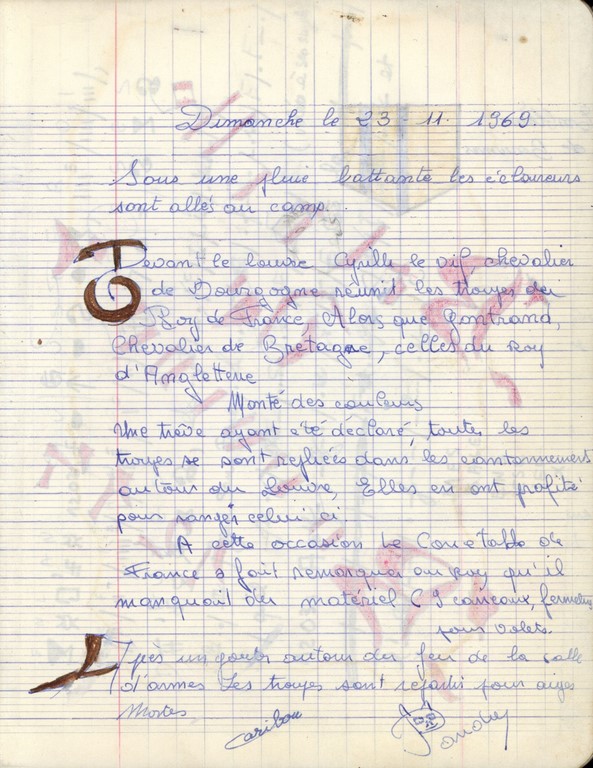 Dimanche le 23-11. 1969.
Sous une pluie battante les éclaireurs
sont allés au camp.
Devant le Louvre Cyrille le vif, chevalier
de Bourgogne réunit les troupes du
Roy de France, Alors que Gontrand,
Chevalier de Bretagne, celles du Roy
d'Angleterre
Monté des couleurs
Une trêve ayant été déclaré, toutes les
troupes se sont repliées dans les cantonnements
autour du Louvre, Elles en ont profité
pour ranger celui ci.
A cette occasion le Conetable de
France a fait remarquer au Roy qu'il
manquait du matériel (9 carreaux,
pour volets.
Après un goute autour du feu de la salle
d'armes Les troupes sont reparti pour aigues
Mortes
Caribou